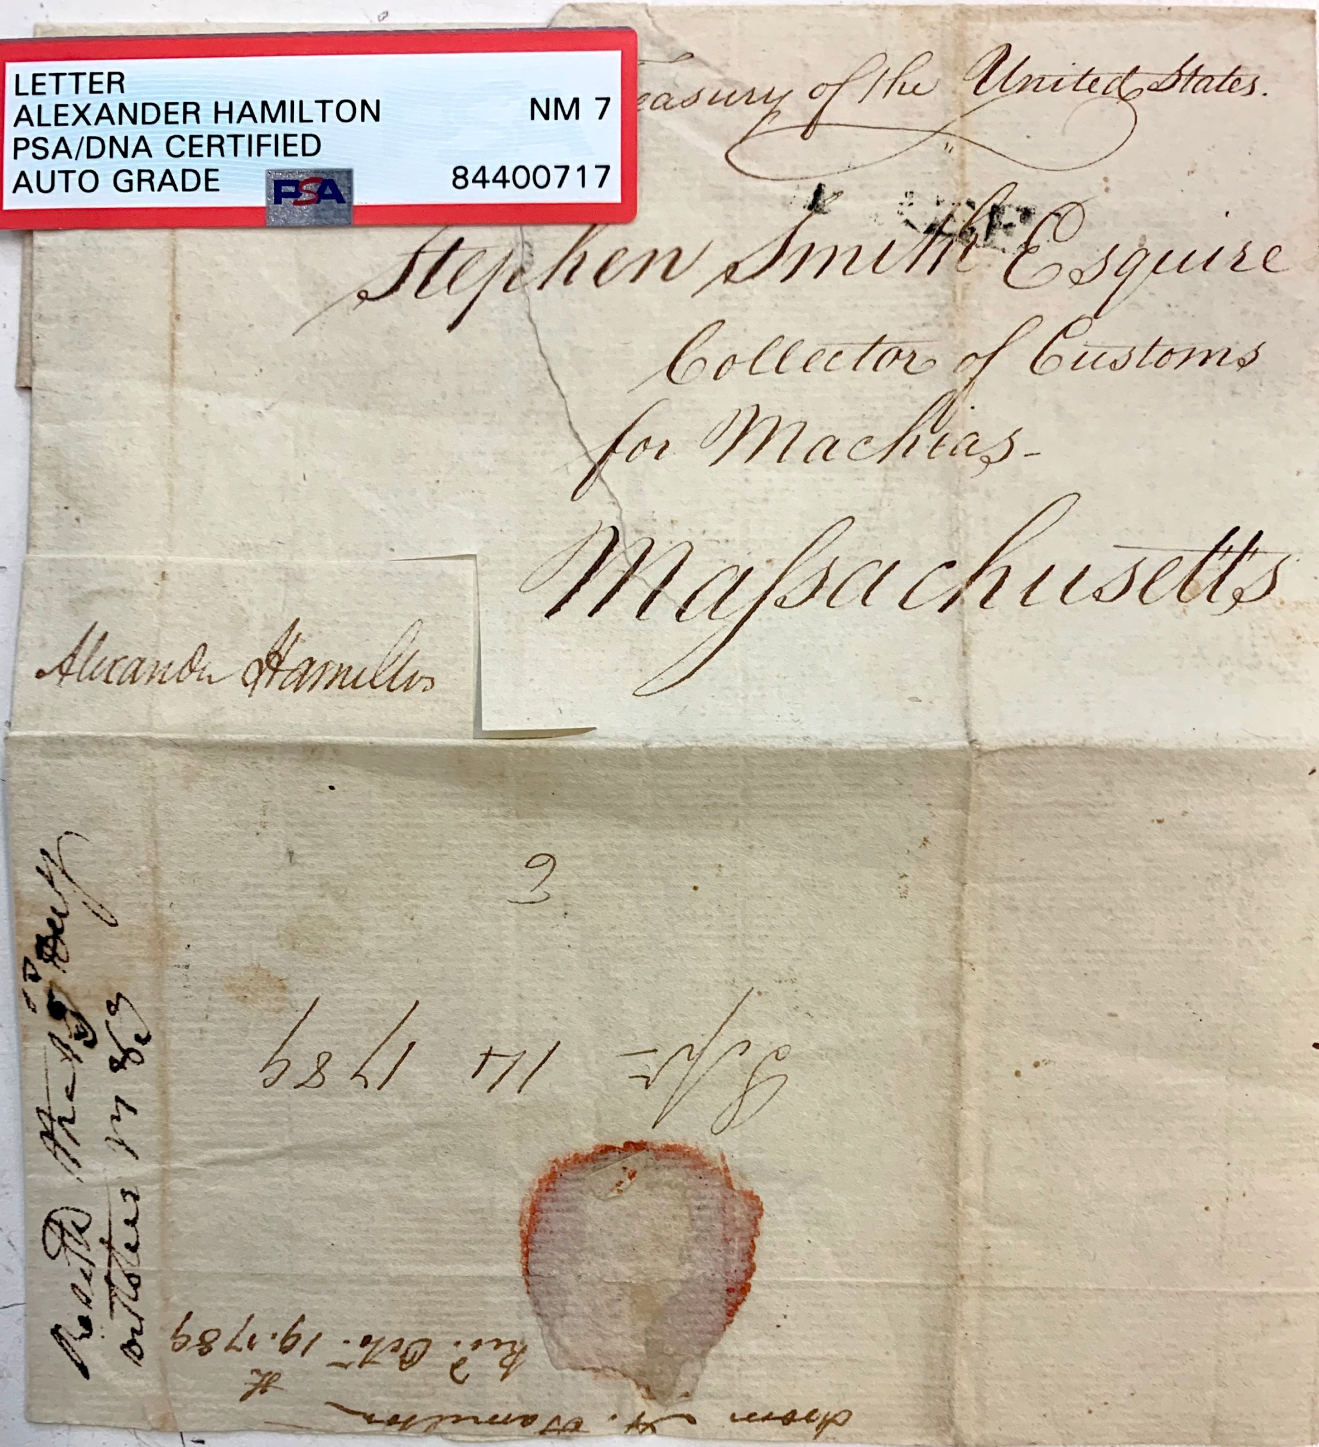 LETTER
ALEXANDER HAMILTON NM 7
PSA/DNA CERTIFIED
AUTO GRADE PSA 84400717
easury of the United States.
Stephen Smith Esquire
Collector of Customs
for Machias-
Massachusetts
Alexander Hamilton
6
Sepr 14 1789
Receivd the 19 Day
October 1789
from A. Hamilton
Recd. Octo. 19th. 1789